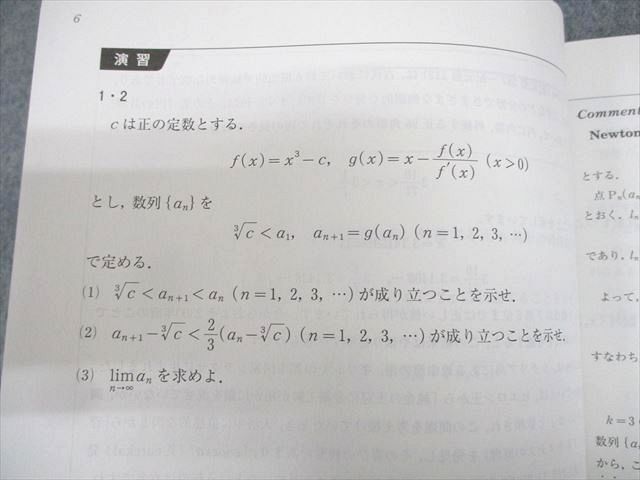 6
演習
1・2
cは正の定数とする.
f(x)=x³-c, g(x)=x-f(x)/f′(x) (x>0)
とし, 数列{aₙ}を
∛c<a₁, aₙ₊₁=g(aₙ) (n=1, 2, 3, …)
で定める.
(1) ∛c<aₙ₊₁<aₙ (n=1, 2, 3, …)が成り立つことを示せ.
(2) aₙ₊₁-∛c<2/3(aₙ-∛c) (n=1, 2, 3, …)が成り立つことを示せ.
(3) lim n→∞ aₙを求めよ.
Comment
Newton
とする.
点Pₙ(a
とおく. lₙ
であり, lₙ
よって,
すなわち
k=3
数列{a
から, こ